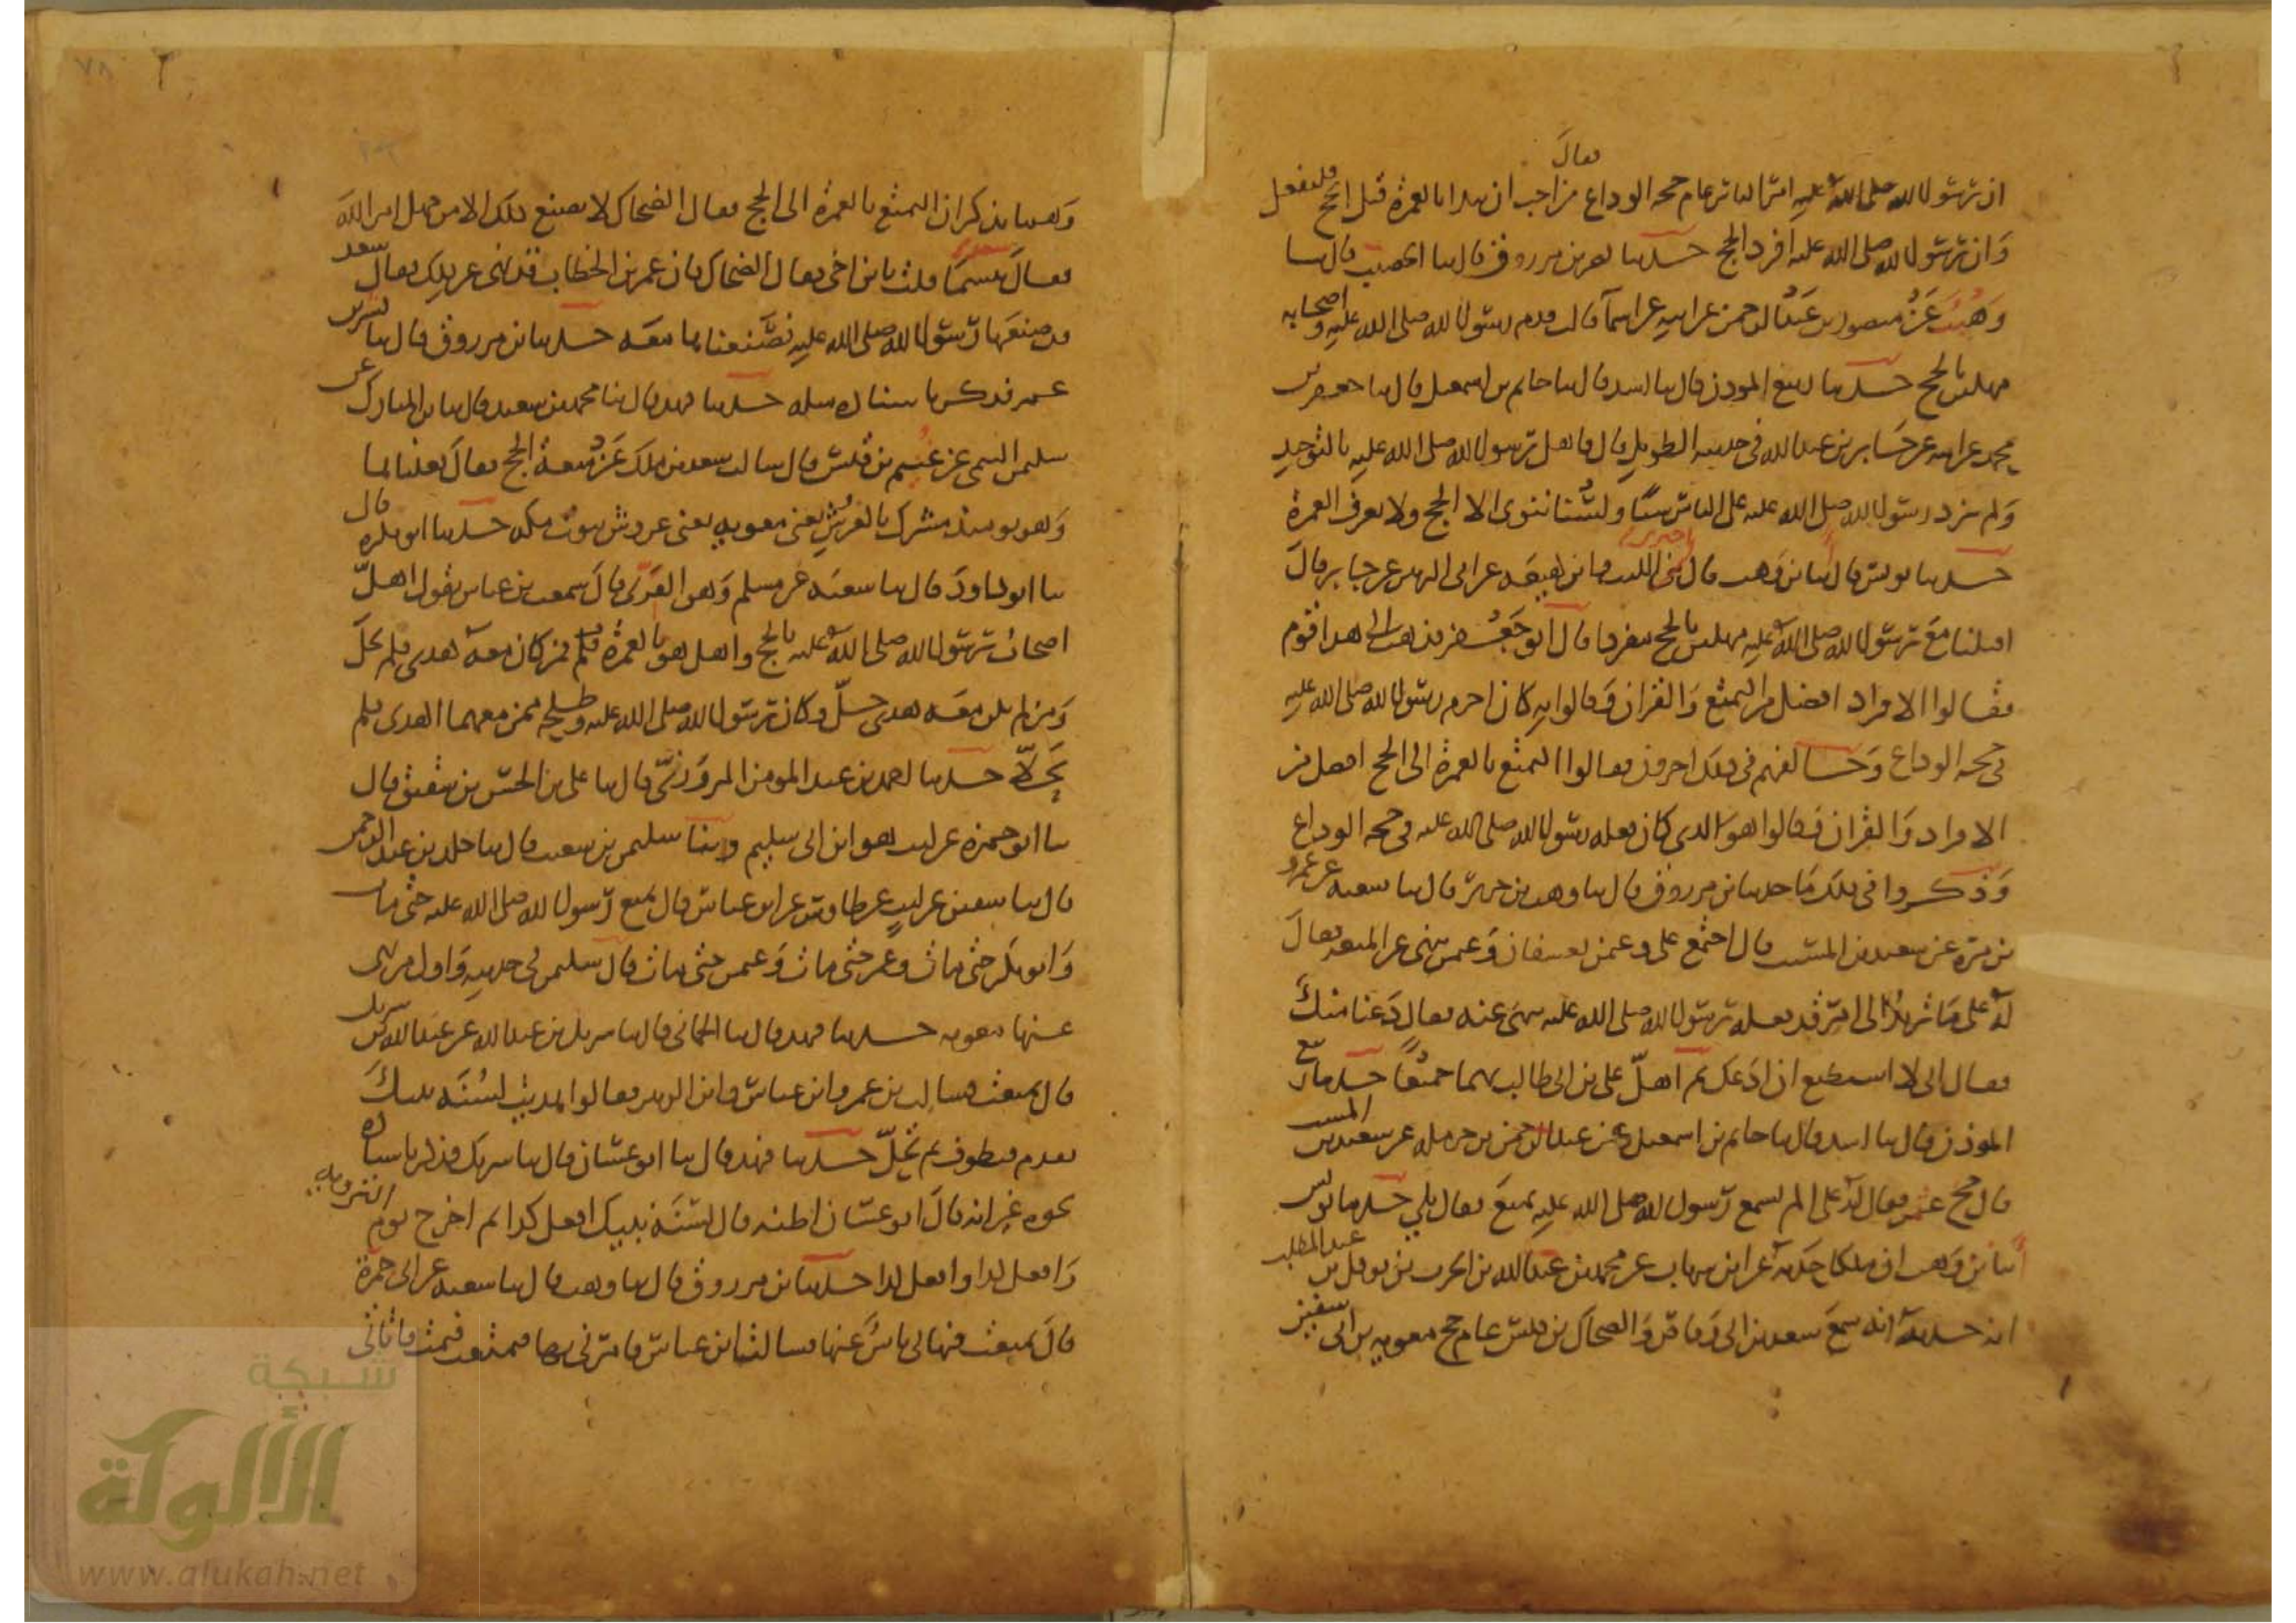 فقال
ان رسول الله صلى الله عليه امر الناس عام حجه الوداع من احب ان يبدا بالعمرة قبل الحج فليفعل
وان رسول الله صلى الله عليه افرد الحج حدثنا ابن مرزوق قال ثنا الخصيب قال ثنا
وهيب عن منصور بن عبد الرحمن عن امه عن اسما قالت قدم رسول الله صلى الله عليه واصحابه
مهلين بالحج حدثنا ربيع المؤذن قال ثنا اسد قال ثنا حاتم بن اسمعيل قال ثنا جعفر بن
محمد عن ابيه عن جابر بن عبد الله في حديثه الطويل قال فاهل رسول الله صلى الله عليه بالتوحيد
ولم يزد رسول الله صلى الله عليه على الناس شيئا ولسنا ننوى الا الحج ولا نعرف العمرة
حدثنا يونس قال انا ابن وهب قال اخبرنى الليث وابن لهيعه عن ابى الزبير عن جابر قال
اقبلنا مع رسول الله صلى الله عليه مهلين بالحج مفردا قال ابو جعفر فذهب الى هذا قوم
فقالوا الافراد افضل من التمتع والقران وقالوا به كان احرم رسول الله صلى الله عليه
فى حجه الوداع وخالفهم فى ذلك اخرون فقالوا التمتع بالعمرة الى الحج افضل من
الافراد والقران وقالوا هو الذى كان فعله رسول الله صلى الله عليه فى حجه الوداع
وذكروا فى ذلك ما حدثنا ابن مرزوق قال ثنا وهب بن جرير قال ثنا شعبه عن عمرو
بن مرة عن سعيد بن المسيب قال اجتمع على وعثمن بعسفان وعثمن ينهى عن المتعه فقال
له على ما تريد الى امر قد فعله رسول الله صلى الله عليه تنهى عنه فقال دعنا منك
فقال انى لا استطيع ان ادعك ثم اهل على بن ابى طالب بهما جميعا حدثنا ربيع
المؤذن قال ثنا اسد قال ثنا حاتم بن اسمعيل عن عبد الرحمن بن حرمله عن سعيد بن المسيب
قال حج عثمن فقال له على الم تسمع رسول الله صلى الله عليه تمتع فقال بلى حدثنا يونس
انا ابن وهب ان ملكا حدثه عن ابن شهاب عن محمد بن عبد الله بن الحرث بن نوفل بن عبد المطلب
انه حدثه انه سمع سعد بن ابى وقاص والضحاك بن قيس عام حج معويه بن ابى سفين
وهما يذكران التمتع بالعمرة الى الحج فقال الضحاك لا يصنع ذلك الا من جهل امر الله
فقال سعد بئسما قلت يا بن اخى فقال الضحاك فان عمر بن الخطاب قد نهى عن ذلك فقال سعد
قد صنعها رسول الله صلى الله عليه وصنعناها معه حدثنا ابن مرزوق قال ثنا بشر بن
عمر فذكر باسناده مثله حدثنا فهد قال ثنا محمد بن سعيد قال ثنا ابن المبارك عن
سليمن التيمى عن غنيم بن قيس قال سالت سعد بن ملك عن متعة الحج فقال فعلناها
وهو يومئذ مشرك بالعرش يعنى معويه يعنى عروش بيوت مكه حدثنا ابو بكره قال
ثنا ابو داود قال ثنا شعبه عن مسلم وهو القرى قال سمعت ابن عباس يقول اهل
اصحاب رسول الله صلى الله عليه بالحج واهل هو بالعمرة فمن كان معه هدى فلم يحل
ومن لم يكن معه هدى حل وكان رسول الله صلى الله عليه وطلحه ممن معهما الهدى فلم
يحلا حدثنا احمد بن عبد المومن المروزى قال ثنا على بن الحسن بن شقيق قال
ثنا ابو حمزه عن ليث هو ابن ابى سليم وثنا سليمن بن شعيب قال ثنا خلد بن عبد الرحمن
قال ثنا سفين عن ليث عن طاوس عن ابن عباس قال تمتع رسول الله صلى الله عليه حتى مات
وابو بكر حتى مات وعمر حتى مات وعثمن حتى مات قال سليمن فى حديثه واول من نهى
عنها معويه حدثنا فهد قال ثنا الحمانى قال ثنا شريك بن عبد الله عن عبد الله بن شريك
قال تمتعت فسالت ابن عمر وابن عباس وابن الزبير فقالوا هديت لسنه نبيك
تقدم فتطوف ثم تحل حدثنا فهد قال ثنا ابو غسان قال ثنا شريك فذكر باسناده
نحوه غير انه قال ابو غسان اظنه قال لسنه نبيك افعل كذا ثم احرم يوم الترويه
وافعل كذا وافعل كذا حدثنا ابن مرزوق قال ثنا وهب قال ثنا شعبه عن ابى جمرة
قال تمتعت فنهانى ناس عنها فسالت ابن عباس فامرنى بها فتمتعت فنمت فاتانى
شبكة
الألوكة
www.alukah.net